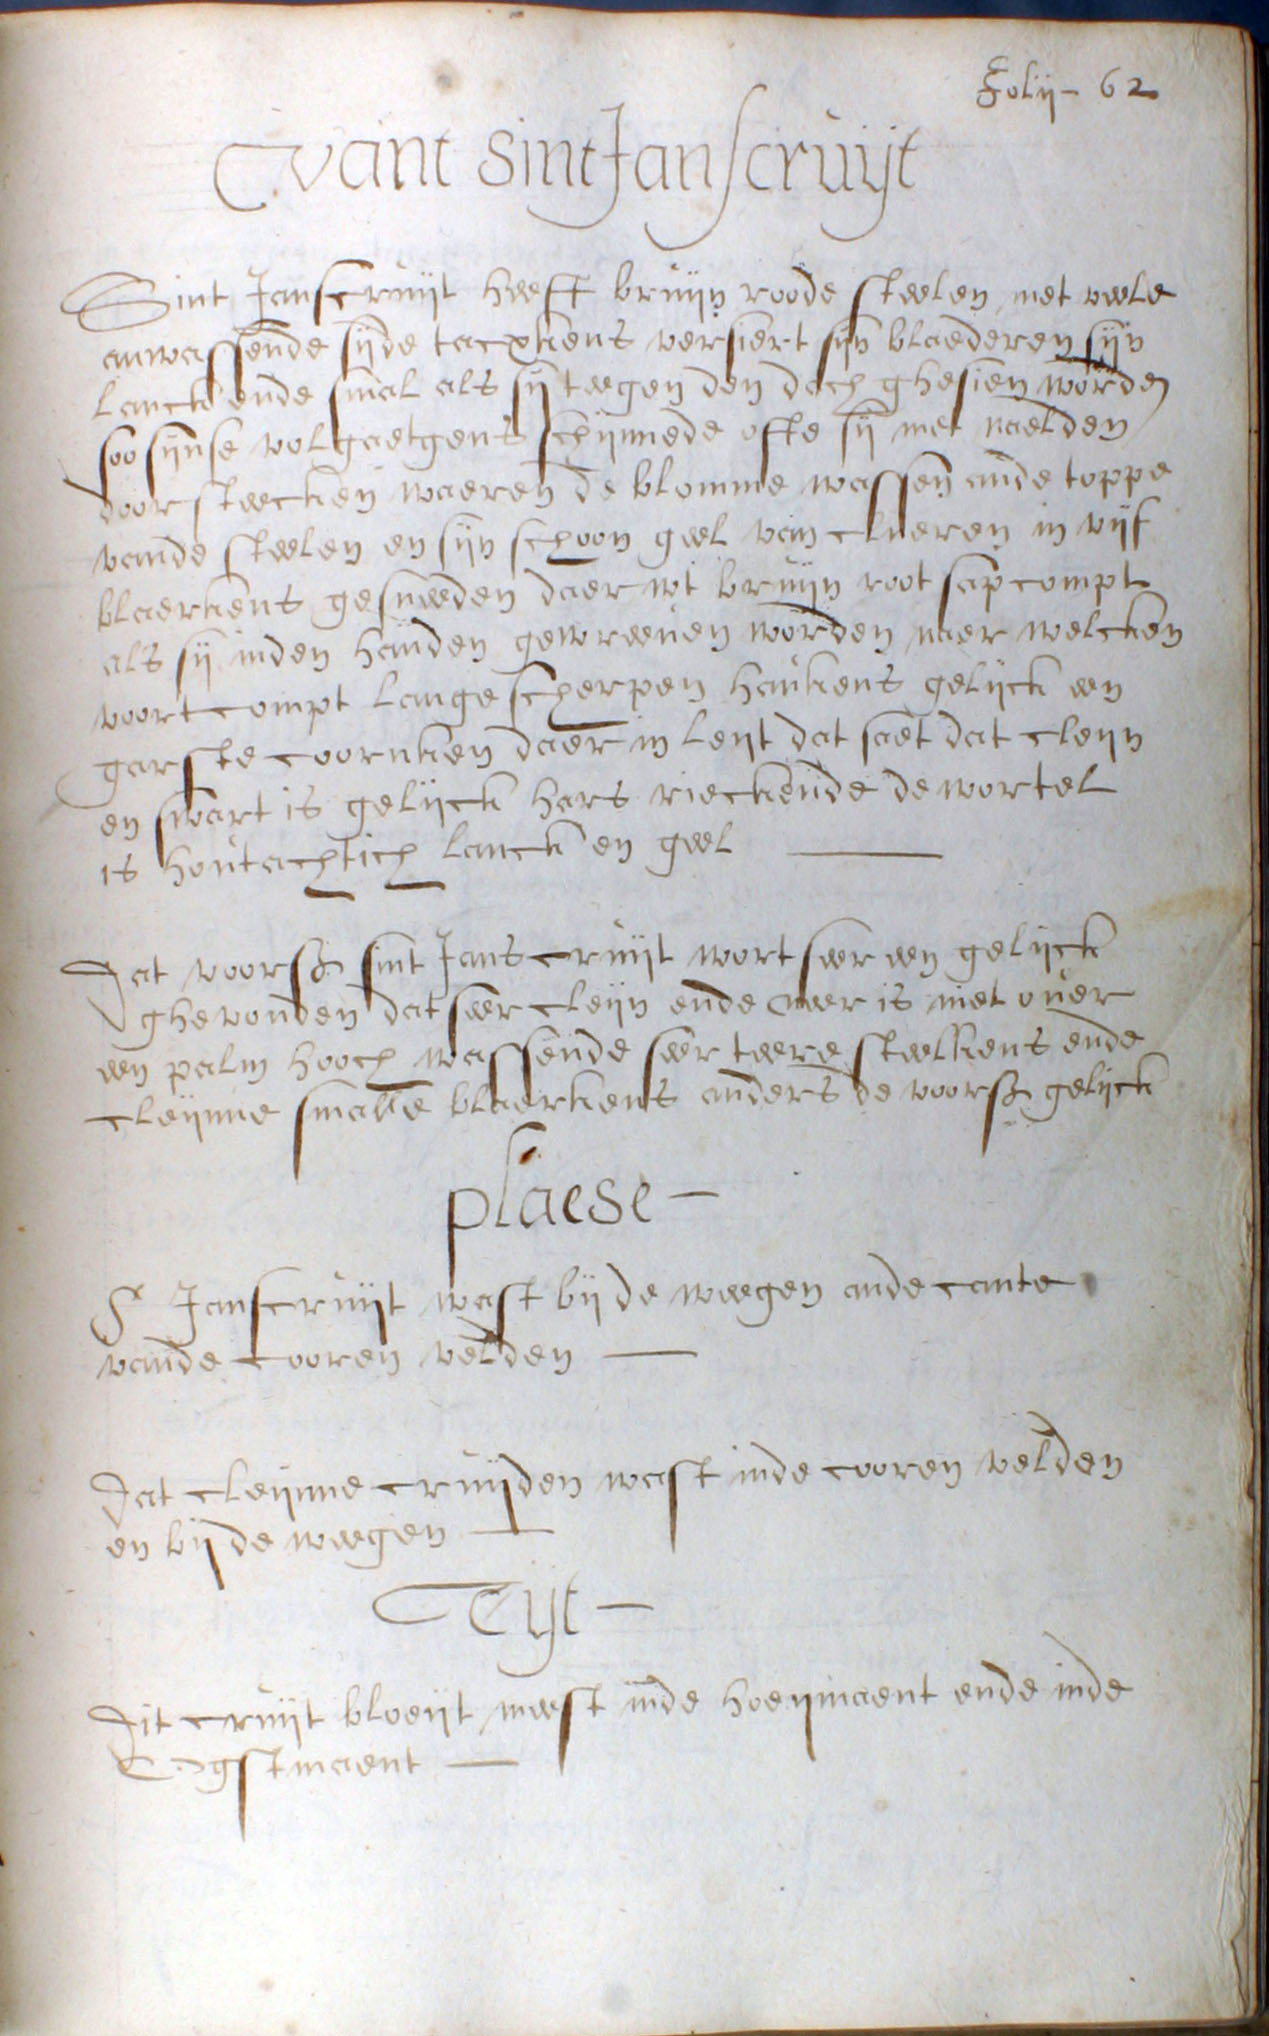 Folij - 62
Vant Sint Janscruijt
Sint Janscruijt heeft bruijn roode steelen met veele
anwassende sijde tacxkens versiert sijn blaederen sijn
lanck ende smal als sij teegen den dach ghesien worden
soo sijnse vol gaetgens schijnnede ofte sij met naelden
doorsteecken waeren de blomme wassen ande toppe
vande steelen en sijn schoon geel van clueren in vijf
blaerkens gesneeden daer wt bruijn root sap compt
als sij inden handen gewreeuen worden naer welcken
voortcompt lange scherpen haukens gelijck een
garste coornken daer in leijt dat saet dat cleijn
en swart is gelijck hars rieckende de wortel
is houtachtich lanck en geel
Dat voors sint Janscruijt wort seer een gelijck
ghevonden dat seer cleijn ende neer is niet ouer
een palm hooch wassende seer teere steelkens ende
cleijnne smalle blaerkens anders de voors gelijck
plaese -
St Janscruijt wast bij de weegen ande cante
vande cooren velden
Dat cleijnne cruijden wast inde cooren velden
en bij de weegen
Teijt -
Dit cruijt bloeijt meest inde hoeijmaent ende inde
Oogstmaent